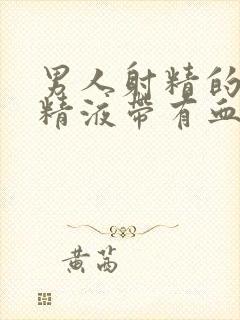 男人射精的
精液带有血
黄芮